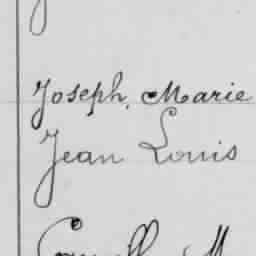 Joseph, Marie
Jean Louis